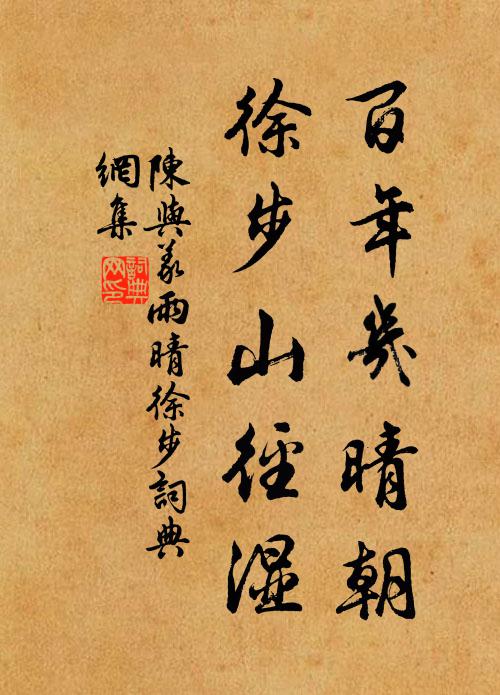 百年幾晴朝
徐步山徑濕
陳與義雨晴徐步詞典
網集
詞典
網印